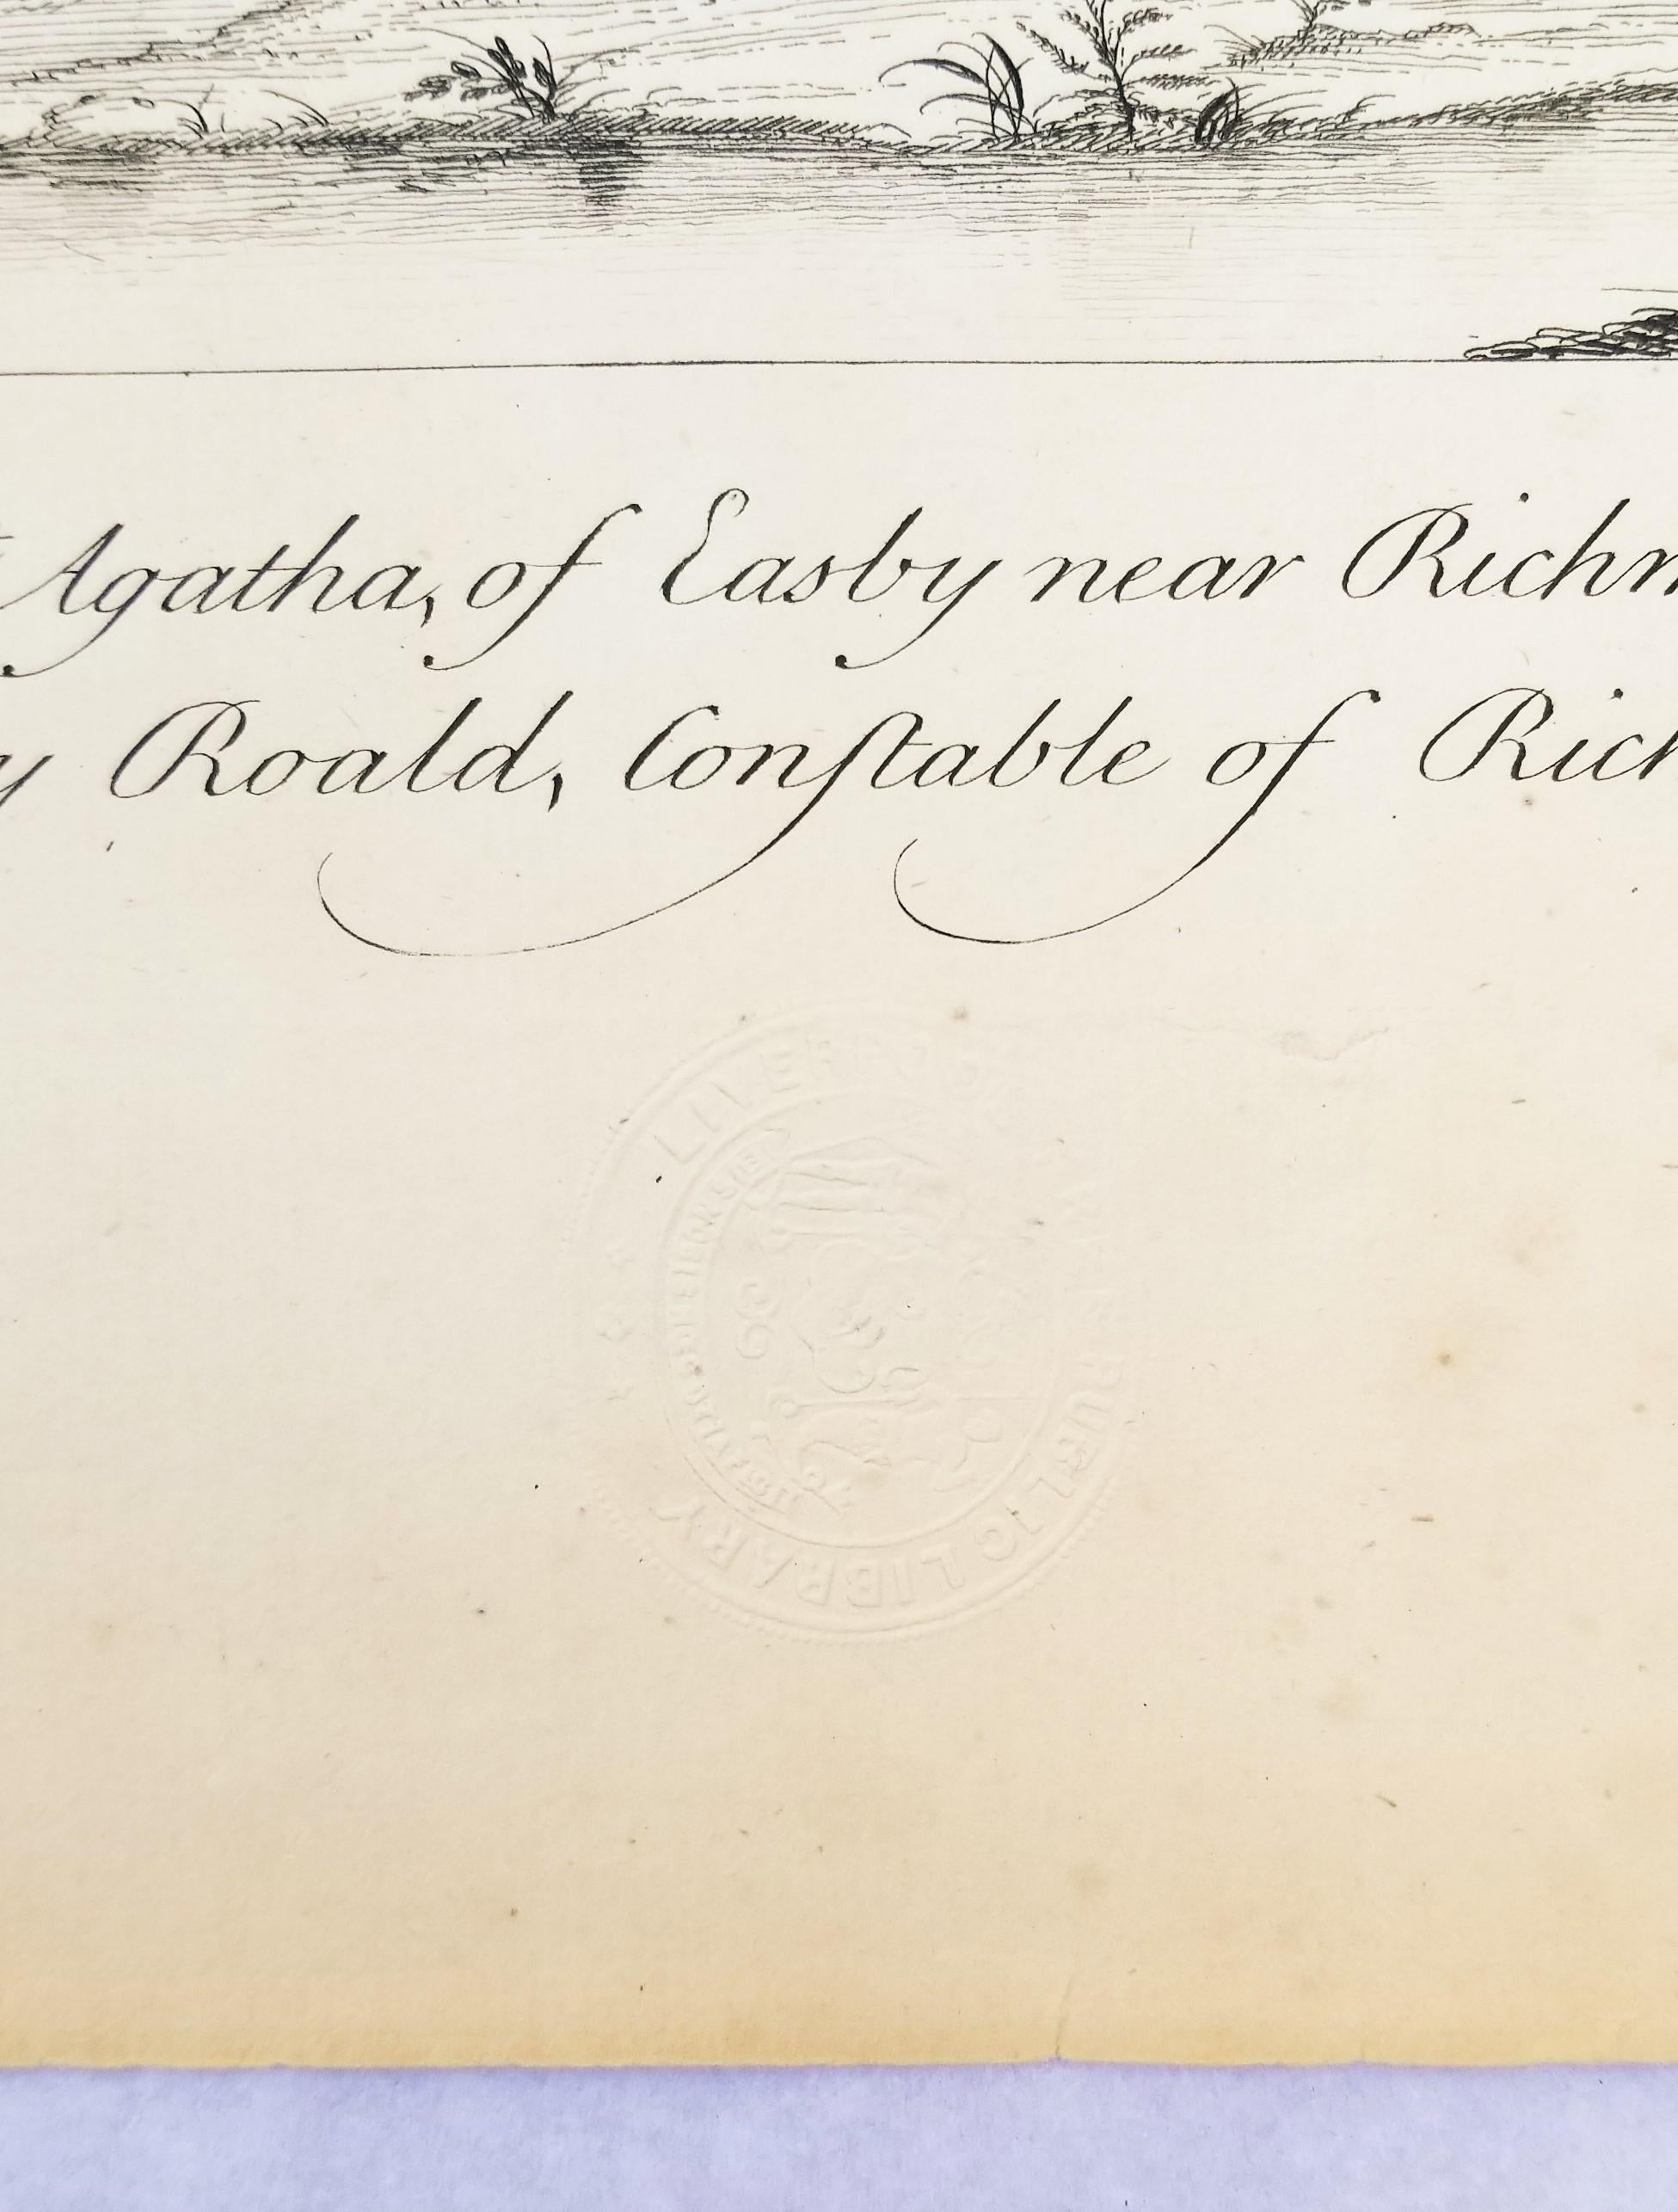 Agatha, of Easby near Richm
y Roald, Conſtable of Rich
LIVERPOOL FREE PUBLIC LIBRARY